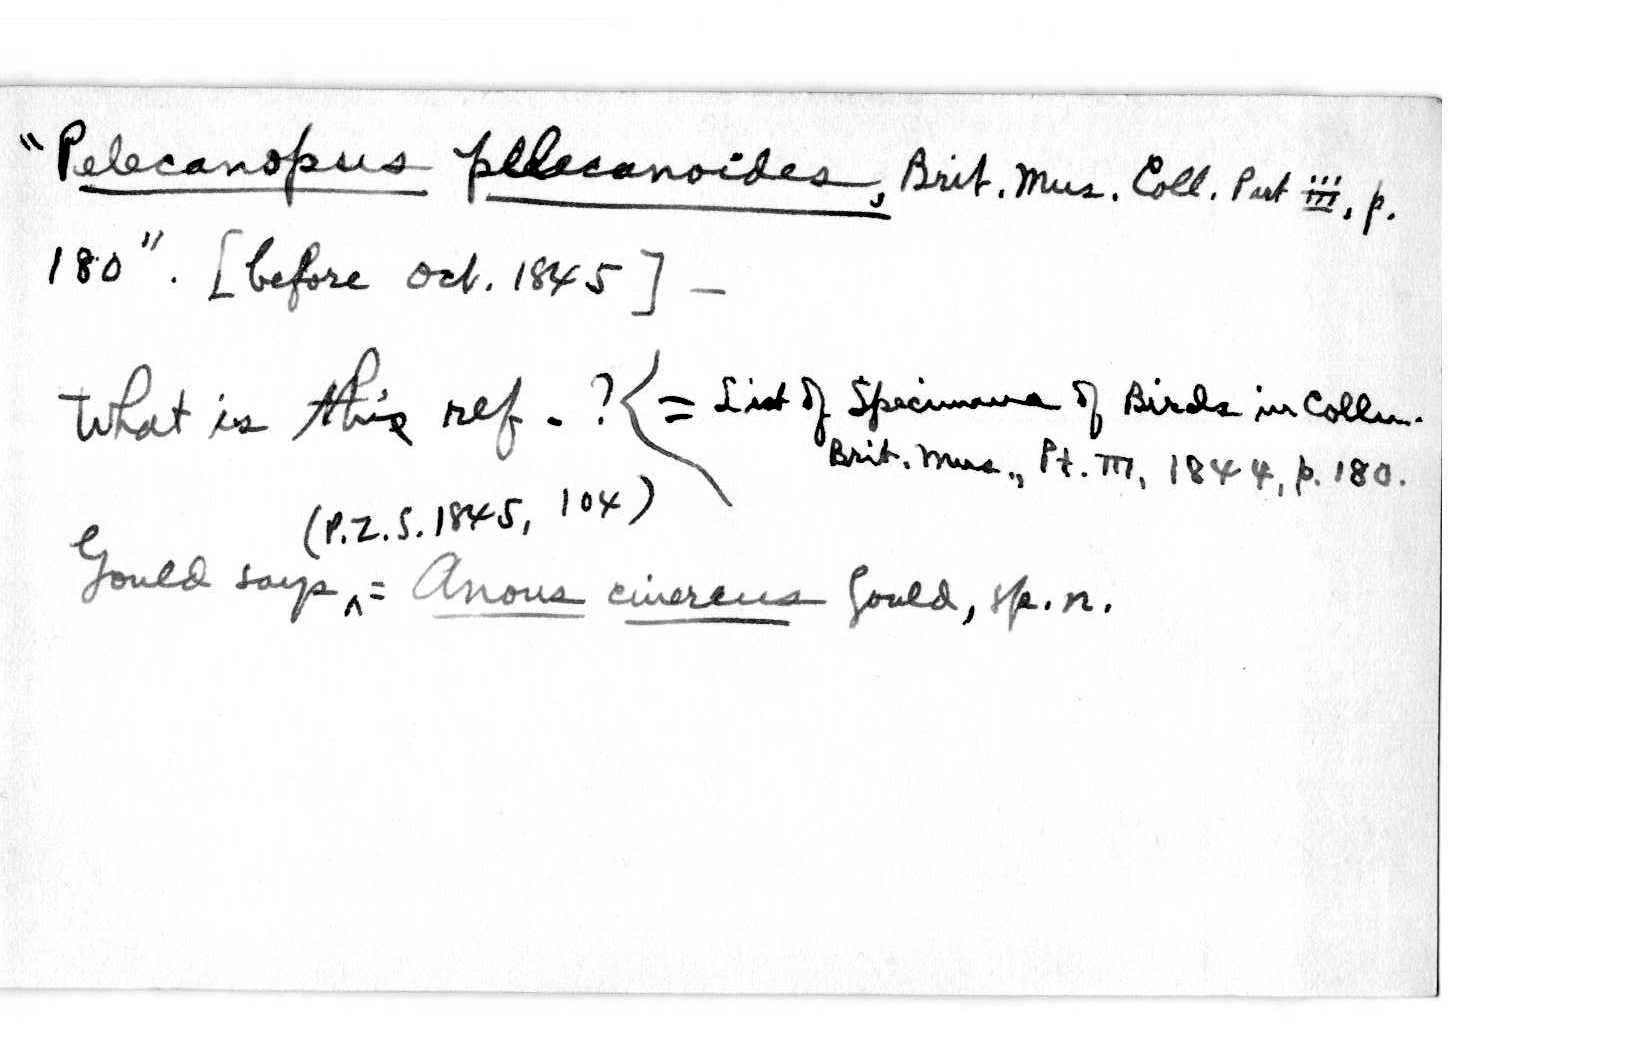 "Pelecanopus pelecanoides, Brit. Mus. Coll. Part iii, p.
180". [before Oct. 1845] —
What is this ref. ? { = List of Specimens of Birds in Colln.
Brit. Mus., Pt. III, 1844, p. 180.
(P.Z.S. 1845, 104)
Gould says ^ = Anous cinereus Gould, sp. n.